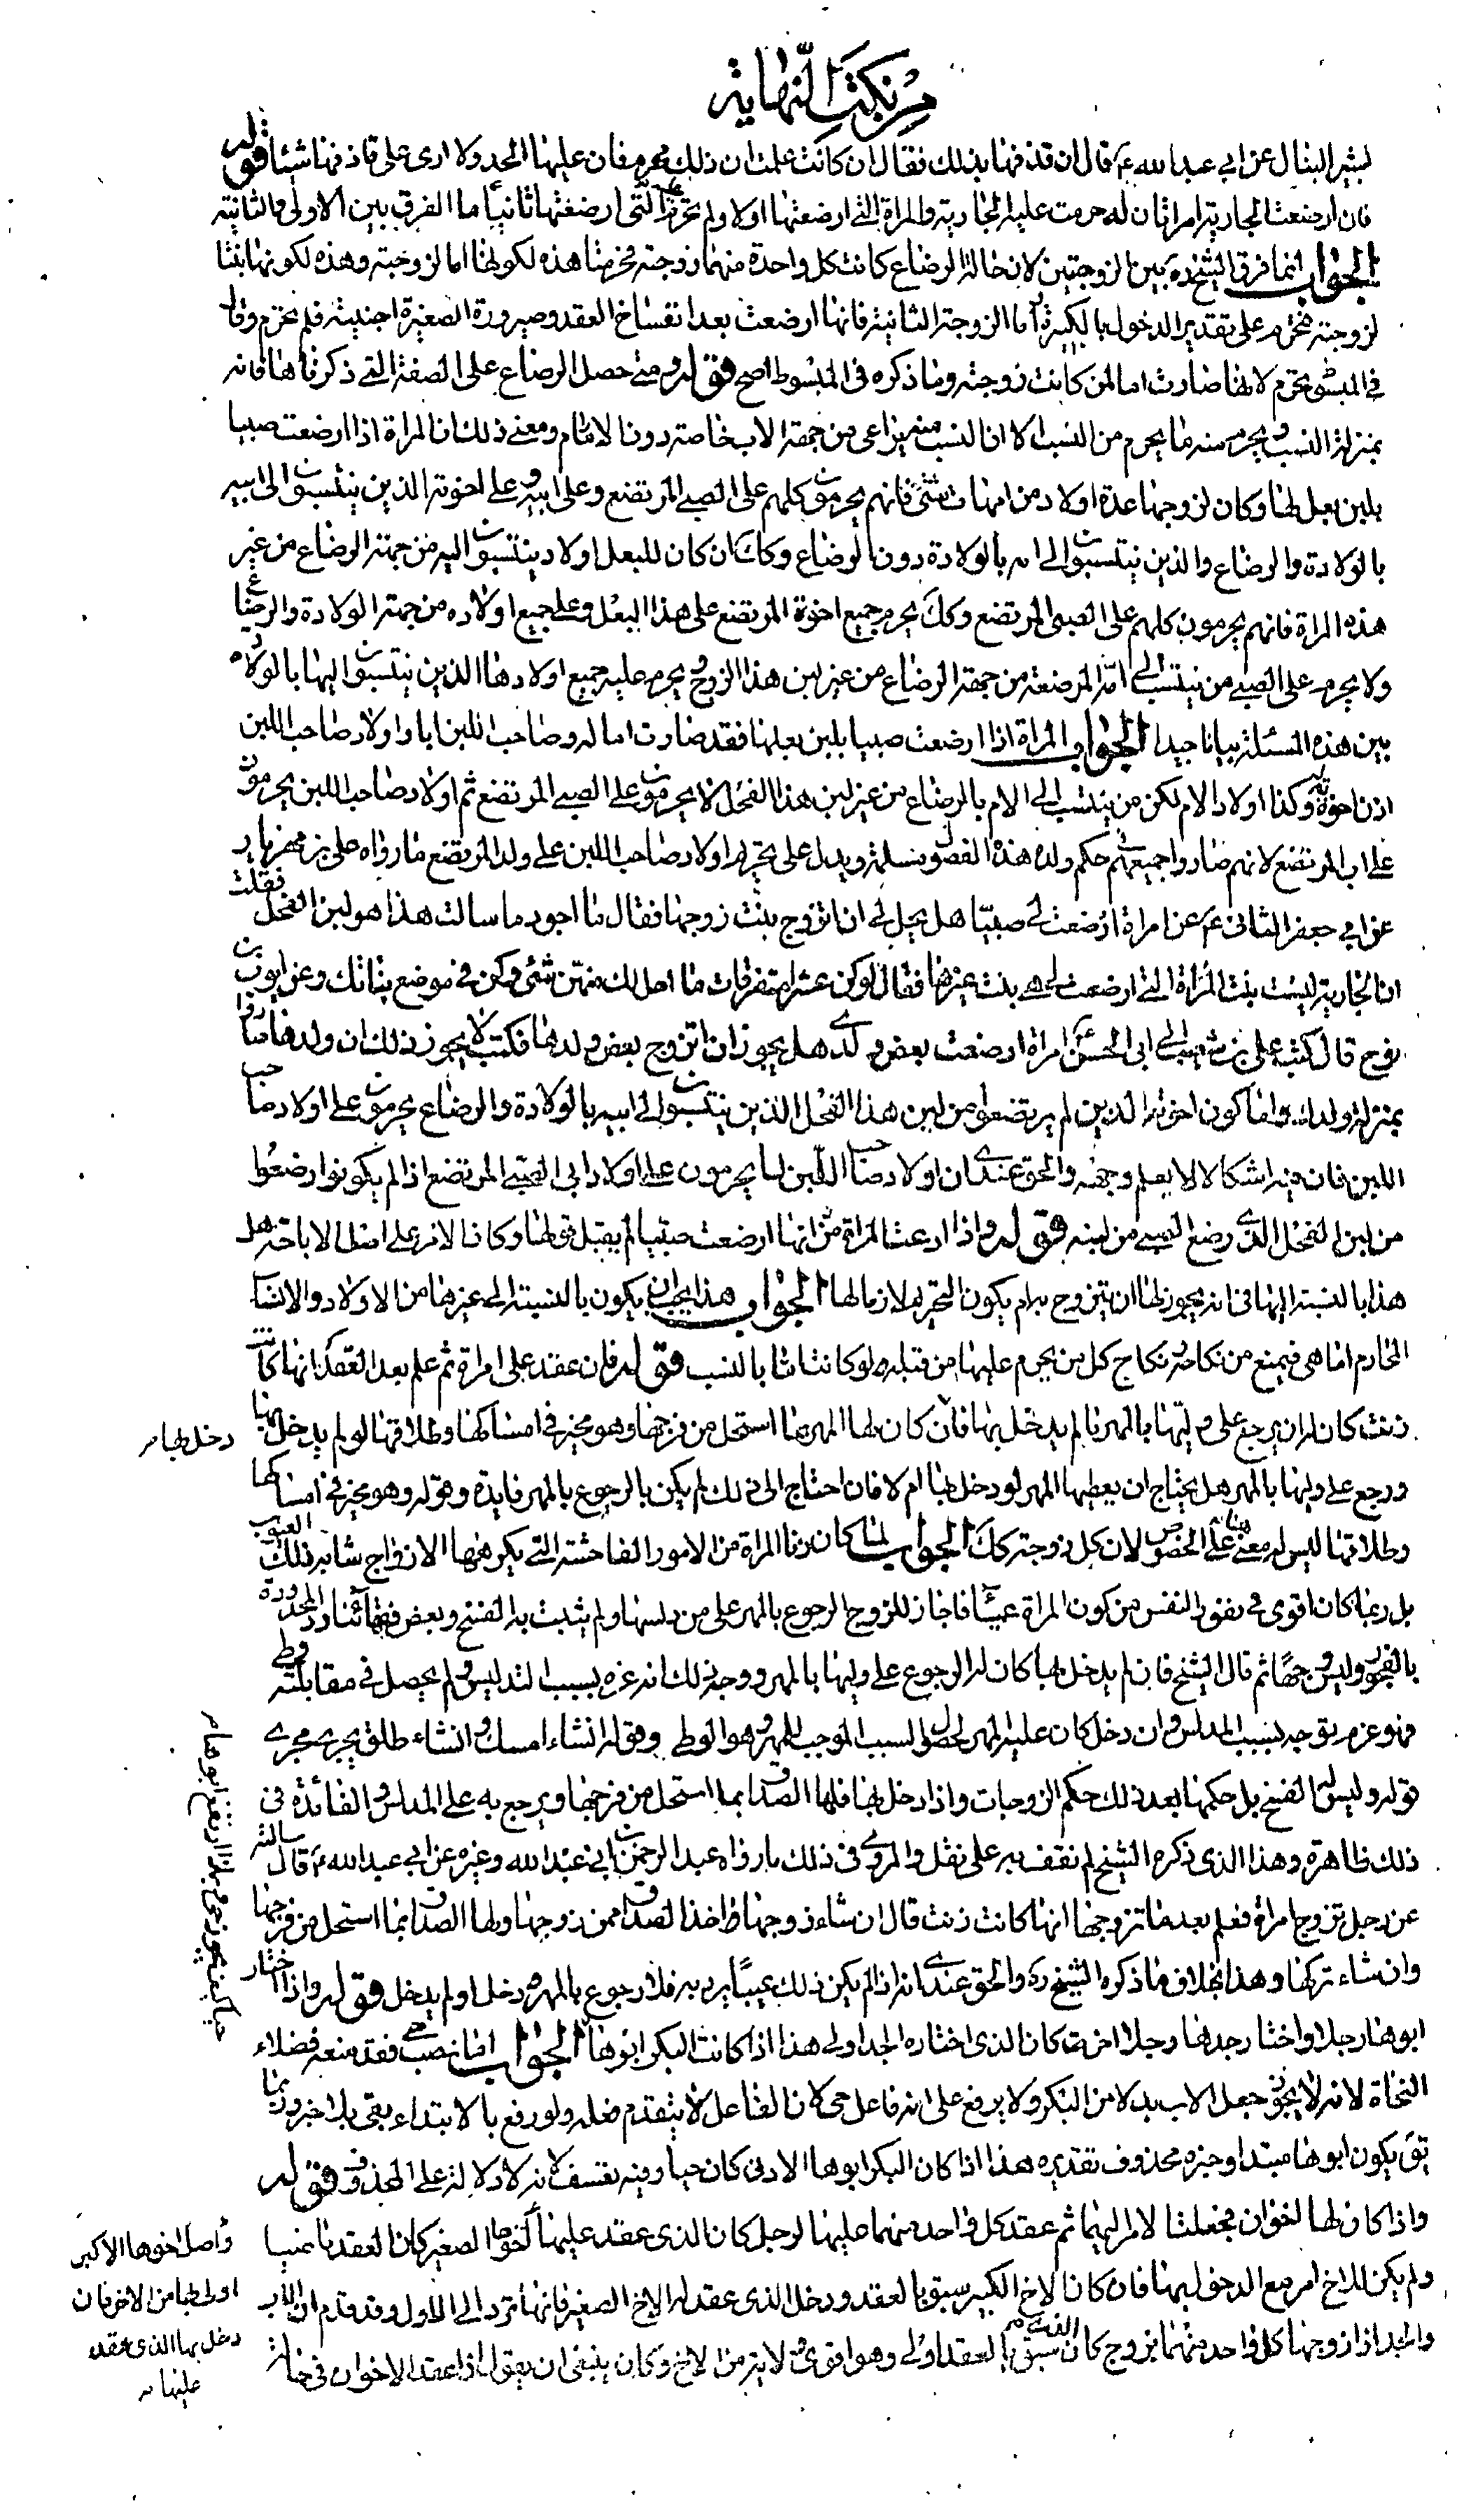 من نكت النهاية
لبشير النبال عن ابي عبد الله ع قال ان قذفها بذلك فقال ان كانت علمت ان ذلك محرم فان عليها الحد ولا ارى على قاذفها شيئا قوله
فان ارضعت الجارية امراتان له حرمت عليه الجارية والمراة التي ارضعتها اولا ولم تحرم التي ارضعتها ثانيا ما الفرق بين الاولى والثانية
الجواب انما فرق الشيخ ره بين الزوجتين لان حالة الرضاع كانت كل واحدة منهما زوجته فحرمتا هذه لكونها اما لزوجته وهذه لكونها بنتا
لزوجته فتحرم على تقدير الدخول بالكبيرة اما الزوجة الثانية فانها ارضعت بعد انفساخ العقد وصيرورة الصغيرة اجنبية فلم تحرم وقال
في المبسوط تحرم لانها صارت اما لمن كانت زوجته وما ذكره في المبسوط اصح قوله ومتى حصل الرضاع على الصفة التي ذكرناها فانه
بمنزلة النسب ويحرم منه ما يحرم من النسب الا ان النسب منه يراعى من جهة الاب خاصة دون الام ومعنى ذلك ان المراة اذا ارضعت صبيا
بلبن بعل لها وكان لزوجها عدة اولاد من امهات شتى فانهم يحرمون كلهم على الصبي المرتضع وعلى ابيه وعلى اخوته الذين ينتسبون الى ابيه
بالولادة والرضاع والذين ينتسبون الى امه بالولادة دون الرضاع وكك ان كان للبعل اولاد ينتسبون اليه من جهة الرضاع من غير
هذه المراة فانهم يحرمون كلهم على الصبي المرتضع وكك يحرم جميع اخوة المرتضع على هذا البعل وعلى جميع اولاده من جهة الولادة والرضاع
ولا يحرم على الصبي من ينتسب الى امه المرضعة من جهة الرضاع من غير لبن هذا الزوج ويحرم عليه جميع اولادها الذين ينتسبون اليها بالولادة
بين هذه المسئلة بيانا جيدا الجواب المراة اذا ارضعت صبيا بلبن بعلها فقد صارت اما له وصاحب اللبن ابا واولاد صاحب اللبن
اذن اخوة له وكذا اولاد الام لكن من ينتسب الى الام بالرضاع من غير لبن هذا الفحل لا يحرمون على الصبي المرتضع ثم اولاد صاحب اللبن يحرمون
على اب المرتضع لانهم صاروا جميعهم في حكم ولده هذه الفصول مسلمة ويدل على تحريم اولاد صاحب اللبن على ولد المرتضع ما رواه علي بن مهزيار
عن ابي جعفر الثاني ع عن امراة ارضعت لي صبيا هل يحل لي ان اتزوج بنت زوجها فقال ما اجود ما سالت هذا هو لبن الفحل فقلت
ان الجارية ليست بنت المراة التي ارضعت لي هي بنت غيرها فقال لو كن عشرا متفرقات ما احل لك منهن شئ وكن في موضع بناتك وعن ايوب بن
نوح قال كتب علي بن شعيب الى ابي الحسن ع امراة ارضعت بعض ولدي هل يجوز ان اتزوج بعض ولدها فكتب لا يجوز ذلك ان ولدها صاروا
بمنزلة ولدك واما كون اخوته الذين لم يرتضعوا من لبن هذا الفحل الذين ينتسبون الى ابيه بالولادة والرضاع يحرمون على اولاد صاحب
اللبن فان فيه اشكالا لا يعلم وجهه والحق عندي ان اولاد صاحب اللبن لا يحرمون على اولاد ابي الصبي المرتضع اذا لم يكونوا رضعوا
من لبن الفحل الذي رضع الصبي من لبنه قوله واذا ادعت المراة من انها ارضعت صبيا لم يقبل قولها وكان الامر على اصل الاباحة هل
هذا بالنسبة اليها في انه يجوز لها ان تتزوج به ام يكون التحريم لازما لها الجواب هذا يجب ان يكون بالنسبة الى غيرها من الاولاد والانساب
المحارم اما هي فيمنع من نكاحه ونكاح كل من يحرم عليها من قبله لو كانت اما بالنسب قوله فان عقد على امراة ثم علم بعد العقد انها كانت
زنت كان له ان يرجع على وليها بالمهر ما لم يدخل بها فان كان لها المهر بما استحل من فرجها وهو مخير في امساكها وطلاقها لو لم يدخل بها
دخل بها
ورجع على وليها بالمهر هل يحتاج ان يعطيها المهر لو دخل بها ام لا فان احتاج الى ذلك لم يكن بالرجوع بالمهر فايدة وقوله وهو مخير في امساكها
وطلاقها ليس له معنى هنا على الخصوص لان كل زوجة كك الجواب لما كان زنا المراة من الامور الفاحشة التي يكرهها الازواج شابه ذلك العيوب
بل ربما كان اقوى في نفور النفس من كون المراة عمياء فاجاز للزوج الرجوع بالمهر على من دلسها ولم يثبت به الفسخ وبعض فقهائنا رد المحدودة
بالفجور وليس وجها ثم قال الشيخ فان لم يدخل بها كان له الرجوع على وليها بالمهر ووجه ذلك انه غره بسبب التدليس ولم يحصل في مقابلته وطي
فهو غرم توجه بسبب المدلس وان دخل كان عليه المهر لحصول السبب الموجب للمهر وهو الوطي وقوله ان شاء امسك وان شاء طلق يجري مجرى
قوله وليس له الفسخ بل حكمها بعد ذلك حكم الزوجات واذا دخل بها فلها الصداق بما استحل من فرجها ويرجع به على المدلس والفائدة في
ذلك ظاهرة وهذا الذي ذكره الشيخ لم نقف به على نقل والمروي في ذلك ما رواه عبد الرحمن بن ابي عبد الله وغيره عن ابي عبد الله ع قال سالته
عن رجل تزوج امراة فعلم بعد ما تزوجها انها كانت زنت قال ان شاء زوجها اخذ الصداق ممن زوجها ولها الصداق بما استحل من فرجها
وان شاء تركها وهذا بخلاف ما ذكره الشيخ ره والحق عندي انه اذا لم يكن ذلك عيبا يرد به فلا رجوع بالمهر دخل او لم يدخل قوله واذا اختار
ابوها رجلا واختار جدها رجلا اخر كان الذي اختاره الجد اولى هذا اذا كانت البكر ابوها الجواب اما نصب حي فقد منعه فضلاء
النحاة لانه لا يجوز جعل الاب بدلا من البكر ولا يرفع على انه فاعل حي لان الفاعل لا يتقدم فعله ولو رفع بالابتداء بقي بلا خبر وربما
يق يكون ابوها مبتدا وخبره محذوف تقديره هذا اذا كان البكر ابوها الادنى كان حيا وفيه تعسف لانه لا دلالة على المحذوف قوله
واذا كان لها اخوان فجعلتا الامر اليهما ثم عقد كل واحد منهما عليها لرجل كان الذي عقد عليها اخوها الصغير كان العقد ماضيا
ولم يكن للاخ امر مع الدخول بها فان كان الاخ الكبير سبق بالعقد ودخل الذي عقد له الاخ الصغير فانها ترد الى الاول وقد قدم ان الاب
والجد اذا زوجها كل واحد منهما بزوج كان الذي سبق بالعقد اولى وهو اقوى ولاية من الاخ وكان ينبغي ان يقول اذا عقد الاخوان في حالة
واصل اخوها الاكبر
اولى بها من الاخر فان
دخل بها الذي عقد
عليها